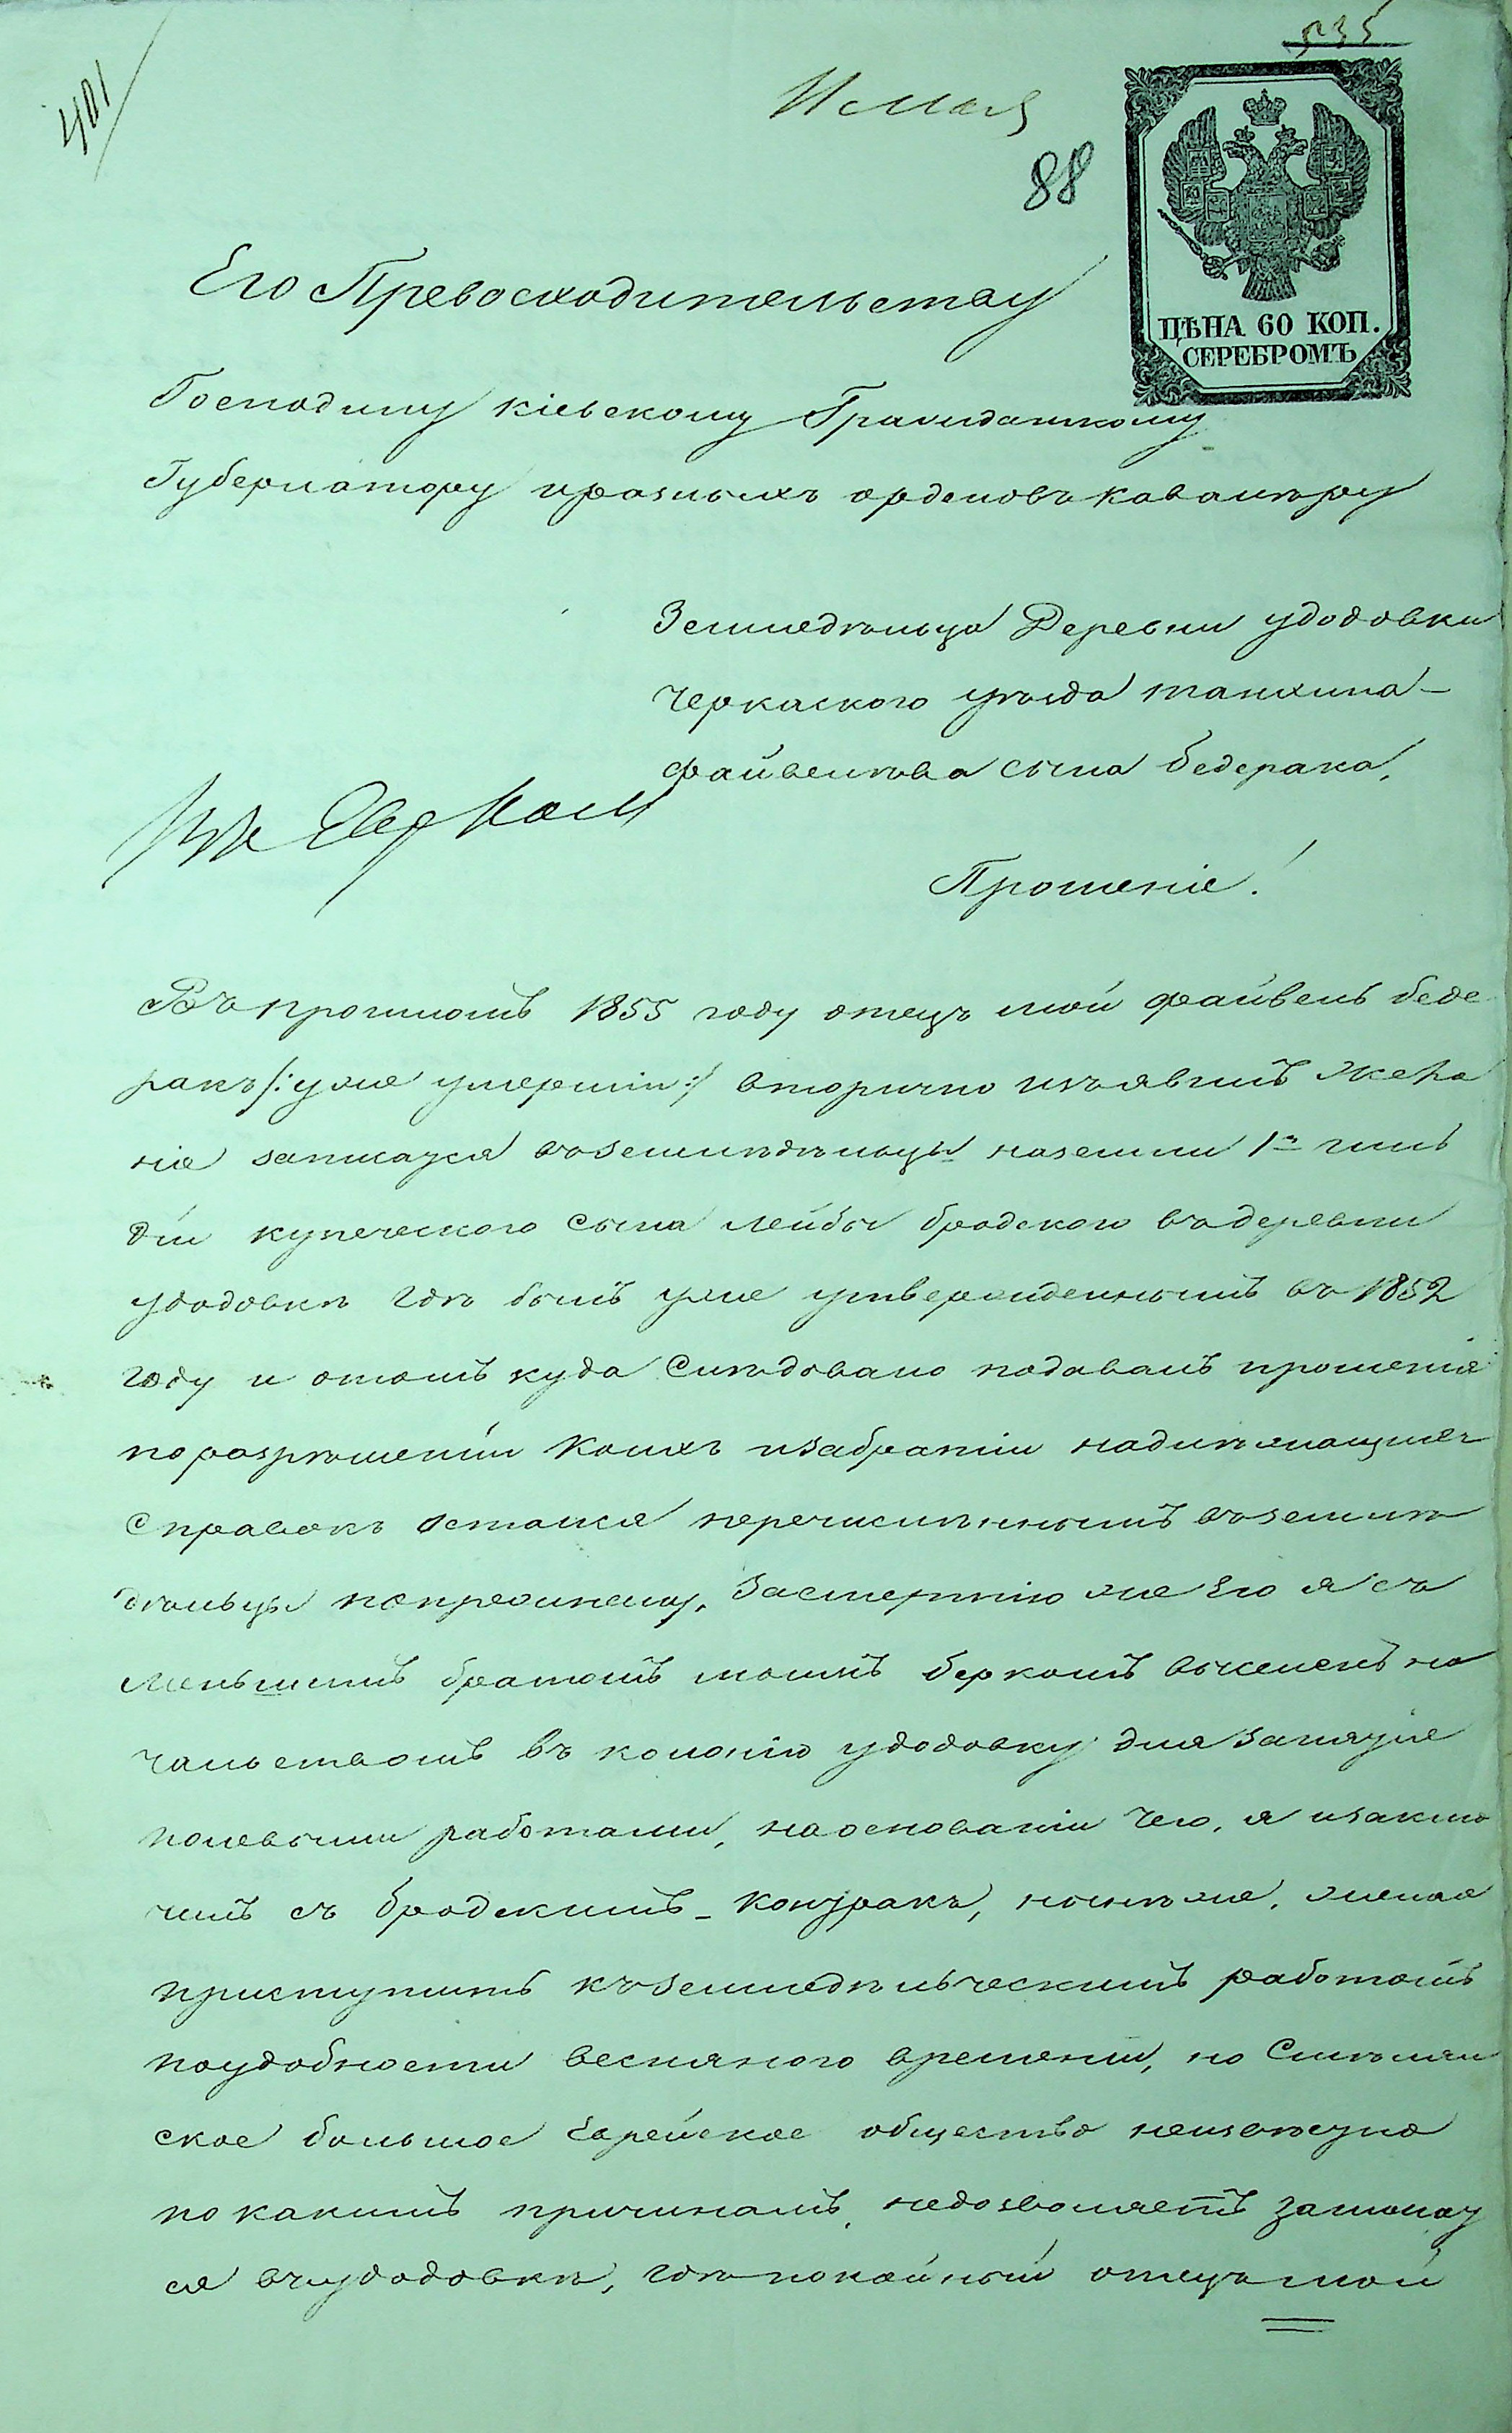 535
401
88
ЦѢНА 60 КОП.
СЕРЕБРОМЪ
Его Превосходительству
Господину кіевскому Гражданскому
Губернатору и разныхъ орденовъ кавалеру
Земледѣльца Деревни удодовки
Черкаского уѣзда танхима
файвелѣва сына бедерака,
Прошеніе!
Въ прошломъ 1855 году отецъ мой файвель беде
ракъ /: уже умершій :/ вторично изъявилъ жела
ніе записатся въ земледѣльцы на земли 1й гиль
діи купеческого сына лейбы бродского въ деревни
удодовкѣ гдѣ былъ уже утвержденнымъ въ 1852
году и отомъ куда Слѣдовало подавалъ прошенія
по разрѣшеніи коихъ и забраніи надлѣжащихъ
Справокъ остался перечислѣннымъ въ землѣ
дѣльцы по прежнему, За смертію же Его я съ
меньшимъ братомъ моимъ беркомъ выселенъ на
чальствомъ въ колонію удодовку для Занятіе
полевыми работами, на основаніи чего, я и заклю
чилъ съ бродскимъ контракъ, нынѣ же, желая
приступить къ земледѣльческимъ работамъ
по удобности весняного времени, но Смѣлян
ское большое Еврейское общество неизвѣсно
по какимъ причинамъ, недозволяетъ
ся въ удодовкѣ, гдѣ покойный отецъ мой